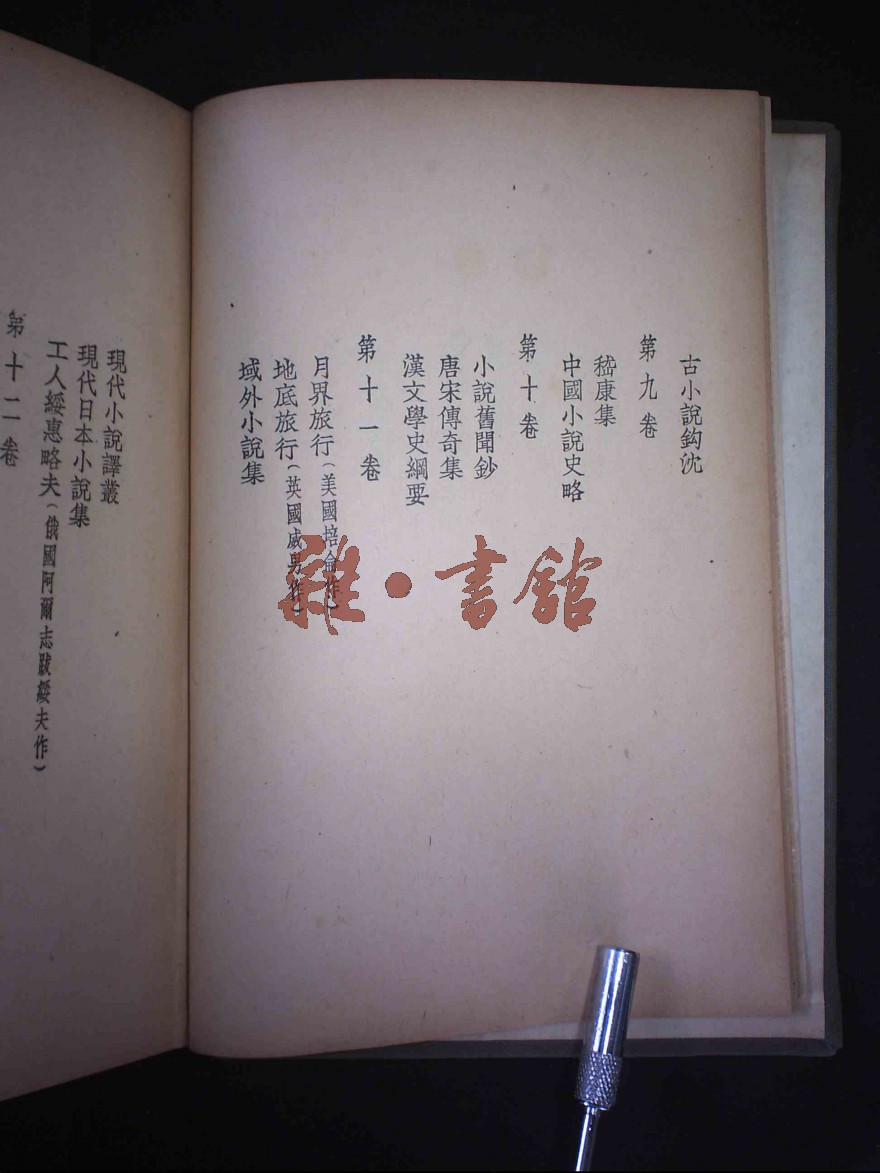 古小說鈎沈
第九卷
嵇康集
中國小說史略
第十卷
小說舊聞鈔
唐宋傳奇集
漢文學史綱要
第十一卷
月界旅行(美國培侖作)
地底旅行(英國威男作)
域外小說集
現代小說譯叢
現代日本小說集
工人綏惠略夫(俄國阿爾志跋綏夫作)
第十二卷
雜·書館